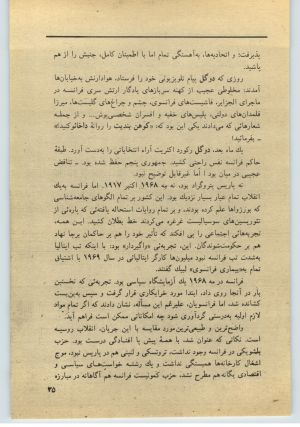 پذیرفت؛ و اتحادیه‌ها، به‌آهستگی تمام اما با اطمینان کامل، جنبش را از هم
پاشید.
روزی که دوگل پیام تلویزیونی خود را فرستاد، هوادارانش به‌خیابان‌ها
آمدند: مخلوطی عجیب از کهنه سربازهای یادگار ارتش سری فرانسه در
ماجرای الجزایر، فاشیست‌های فرانسوی، چشم و چراغ‌های گلیست‌ها، میرزا
قلمدان‌های دولتی، پلیس‌های خفیه و افسران شخصی‌پوش... و از جمله
شعارهائی که می‌دادند یکی این بود که: «کوهن بندیت را روانهٔ داخائو کنید!»
ـ بفرمائید!
یك ماه بعد، دوگل رکورد اکثریت آراء انتخاباتی را به‌دست آورد. طبقهٔ
حاکم فرانسه نفس راحتی کشید. جمهوری پنجم حفظ شده بود. ـ تناقض
عجیبی در میان بود اما غیرقابل توضیح نبود.
نه پاریس پتروگراد بود، نه مه ۱۹۶۸ اکتبر ۱۹۱۷. اما فرانسه به‌یك
انقلاب تمام عیار بسیار نزدیك شد. این کشور بر تمام الگوهای جامعه‌شناسی
که بورژواها علم کرده بودند، و بر تمام روایات استحاله یافته‌ئی که پاره‌ئی از
تئوریسین‌های سوسیالیست غرغره می‌کردند خط بطلان کشید. این همه،
تجربه‌هائی اجتماعی را پی افکند که تأثیر خود را هم بر حاکمان برجا نهاد
هم بر حکومت‌شوندگان. این، تجربه‌ئی «واگیردار» بود: با اینکه تب ایتالیا
به‌شدت تب فرانسه نبود میلیون‌ها کارگر ایتالیائی در سال ۱۹۶۹ با اشتیاق
تمام به«بیماری فرانسوی» لبیك گفتند.
فرانسه در مه ۱۹۶۸ یك آزمایشگاه سیاسی بود. تجربه‌ئی که نخستین
بار در آنجا روی داد، ابتدا مورد خرابکاری قرار گرفت و سپس به‌بن‌بست
کشانده شد، اما فرانسویان، علیرغم این مسأله، نشان دادند که اگر تمام مواد
لازم اولیه به‌درستی گردآوری شود چه امکاناتی ممکن است فراهم آید.
واضح‌ترین و طبیعی‌ترین مورد مقایسه با این جریان، انقلاب روسیه
است. نکاتی که عنوان شد، با همهٔ پیش پا افتادگی درست بود. حزب
بلشویکی در فرانسه وجود نداشت، تروتسکی و لنینی هم در پاریس نبود، موج
اشغال کارخانه‌ها همبستگی نداشت و یك رشته خواست‌های سیاسی و
اقتصادی یگانه هم مطرح نشد. حزب کمونیست فرانسه هم آگاهانه در مبارزه
۳۵